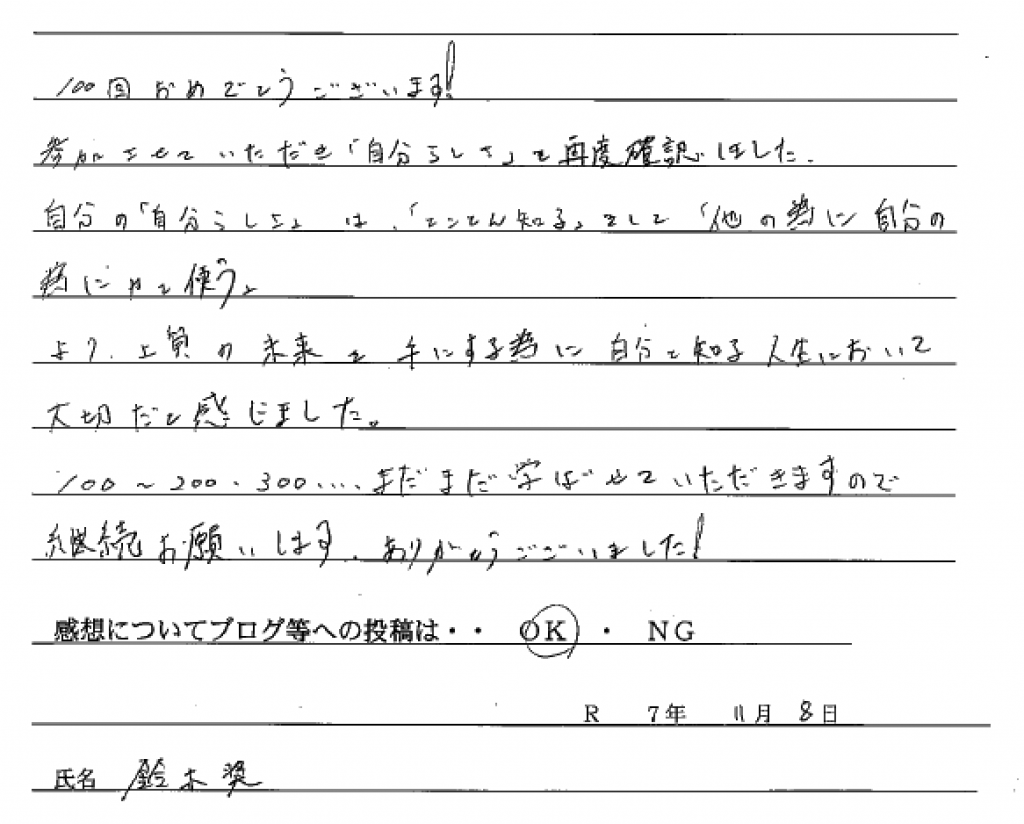 100回おめでとうございます!
参加させていただき「自分らしさ」を再度確認しました.
自分の「自分らしさ」は、「とことん知る」そして「他の為に自分の
為にやを使う」
より、上質の未来を手にする為に自分を知る人生において
大切だと感じました。
100~200・300.... まだまだ学ばせていただきますので
継続お願いします、ありがとうございました!
感想についてブログ等への投稿は・・ OK ・ NG
R 7年 11月 8日
氏名 鈴木奨